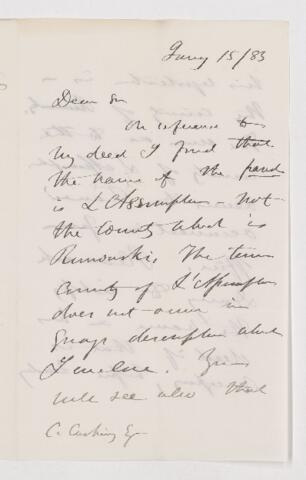 Jany 15/83
Dear Sir
On reference to
my deed I find that
the name of the parish
is L'Assumption - not
the County which is
Rimouski. The term
County of L'Assumption
does not occur in
description which
I enclose. You
will see also that
C. Cushing Esq